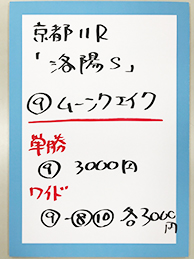 京都11R
「洛陽S」
⑨ムーンクエイク
単勝
⑨ 3000円
ワイド
⑨-⑧⑩ 各3000円